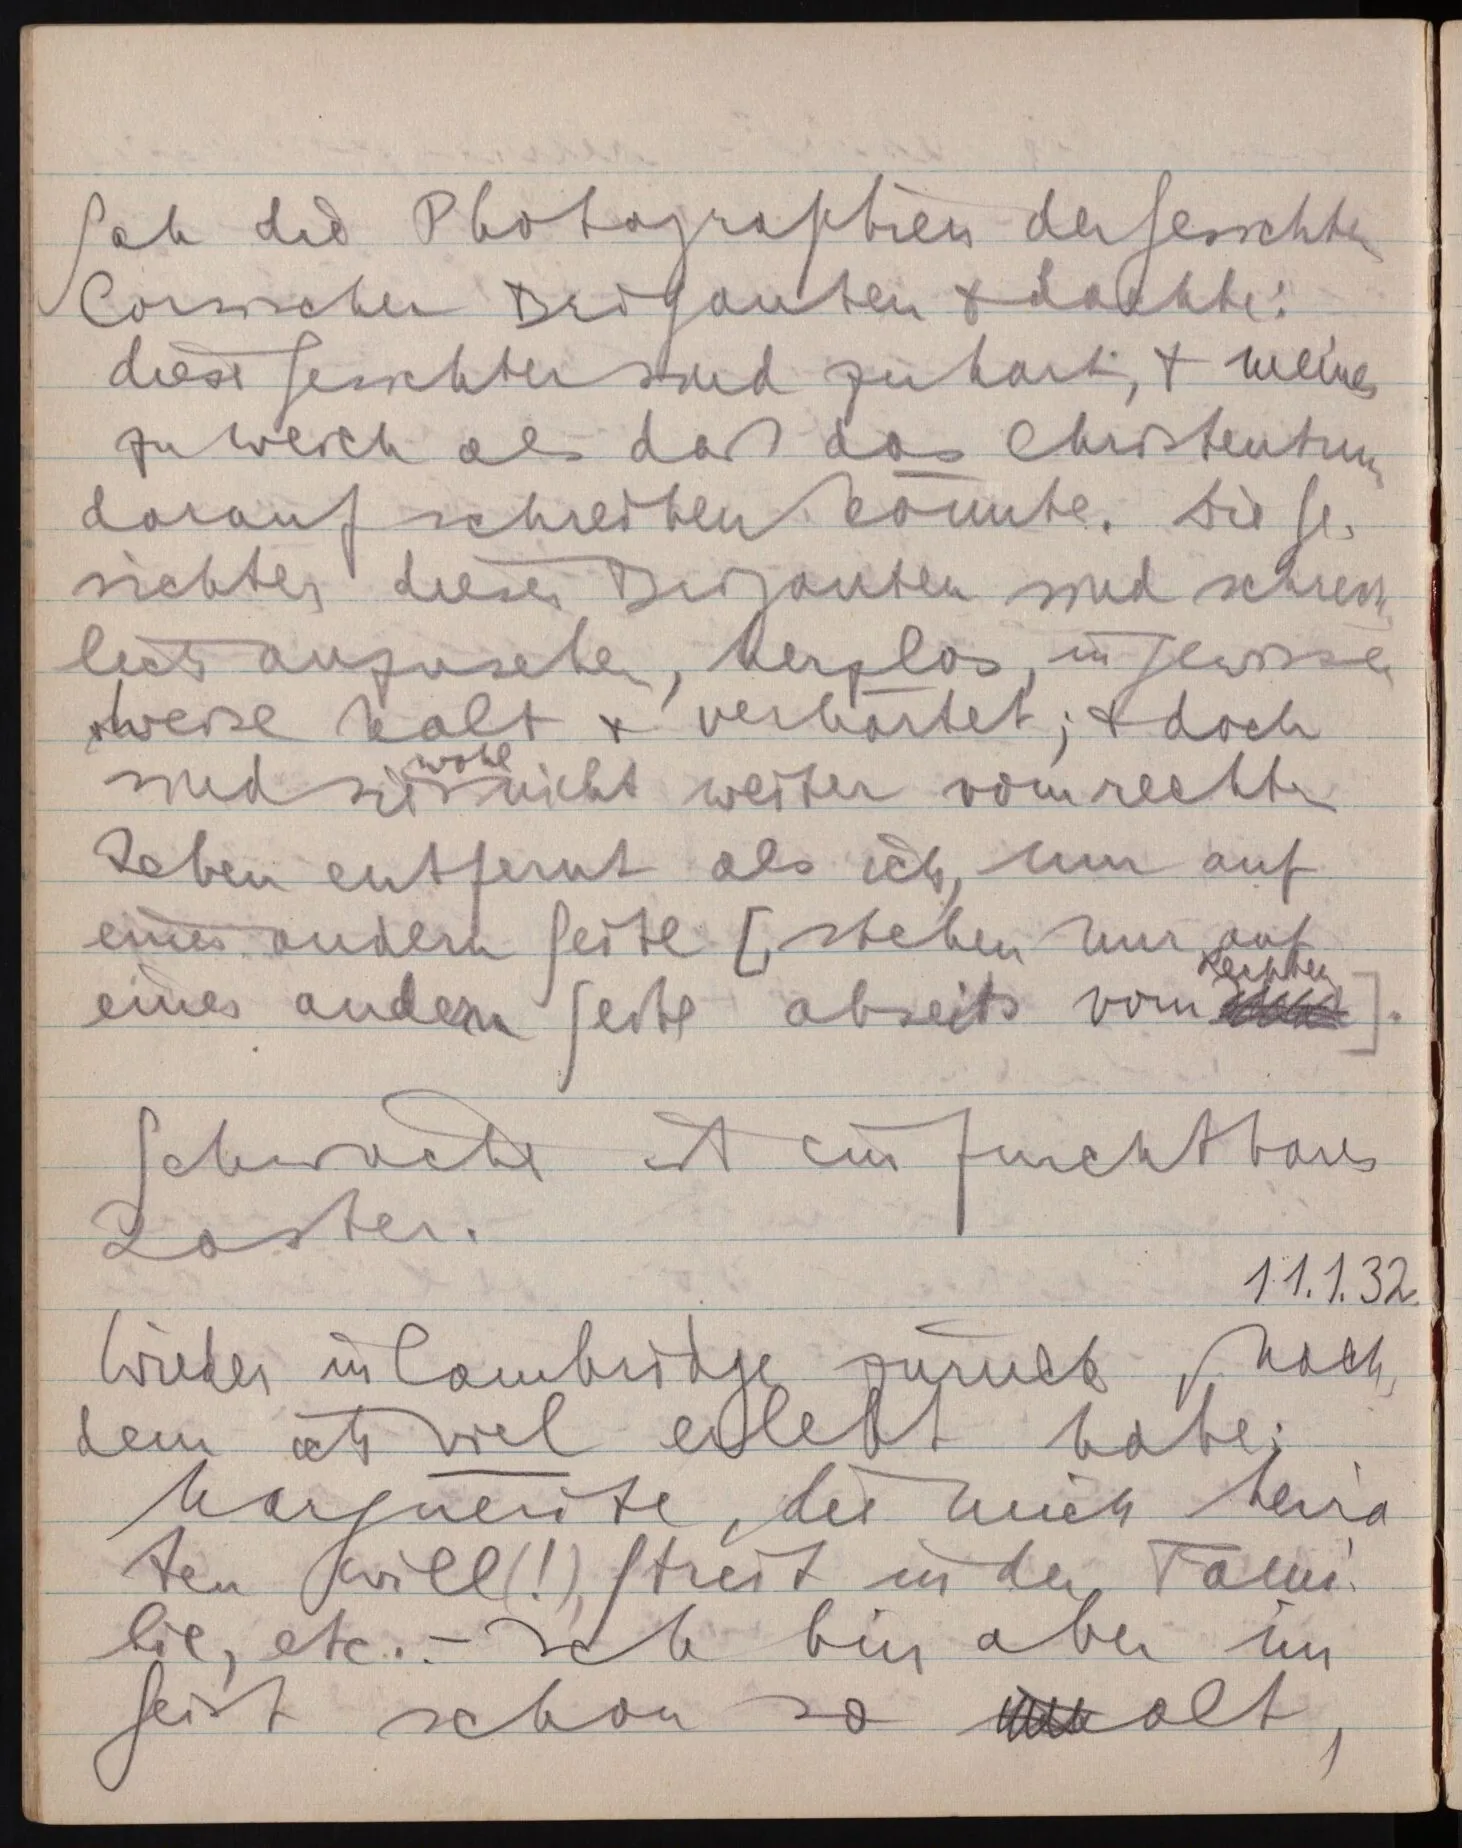 Sah die Photographien der Gesichter
Corsischer Briganten & dachte:
diese Gesichter sind zu hart, & meines
zu weich als daß das Christentum
darauf schreiben könnte. Die Ge-
sichter dieser Briganten sind schreck-
lich anzusehen, herzlos, in gewisser
Weise kalt & verhärtet; & doch
sind sie wohl nicht weiter vom rechten
Leben entfernt als ich, nur auf
einer andern Seite [, stehen nur auf
einer andern Seite abseits vom Rechten].
Schwäche ist ein furchtbares
Laster.
11.1.32.
Wieder in Cambridge zurück, nach-
dem ich viel erlebt habe:
Marguerite, die mich heira
ten will(!), Streit in der Fami-
lie, etc. – Ich bin aber im
Geist schon so alt,